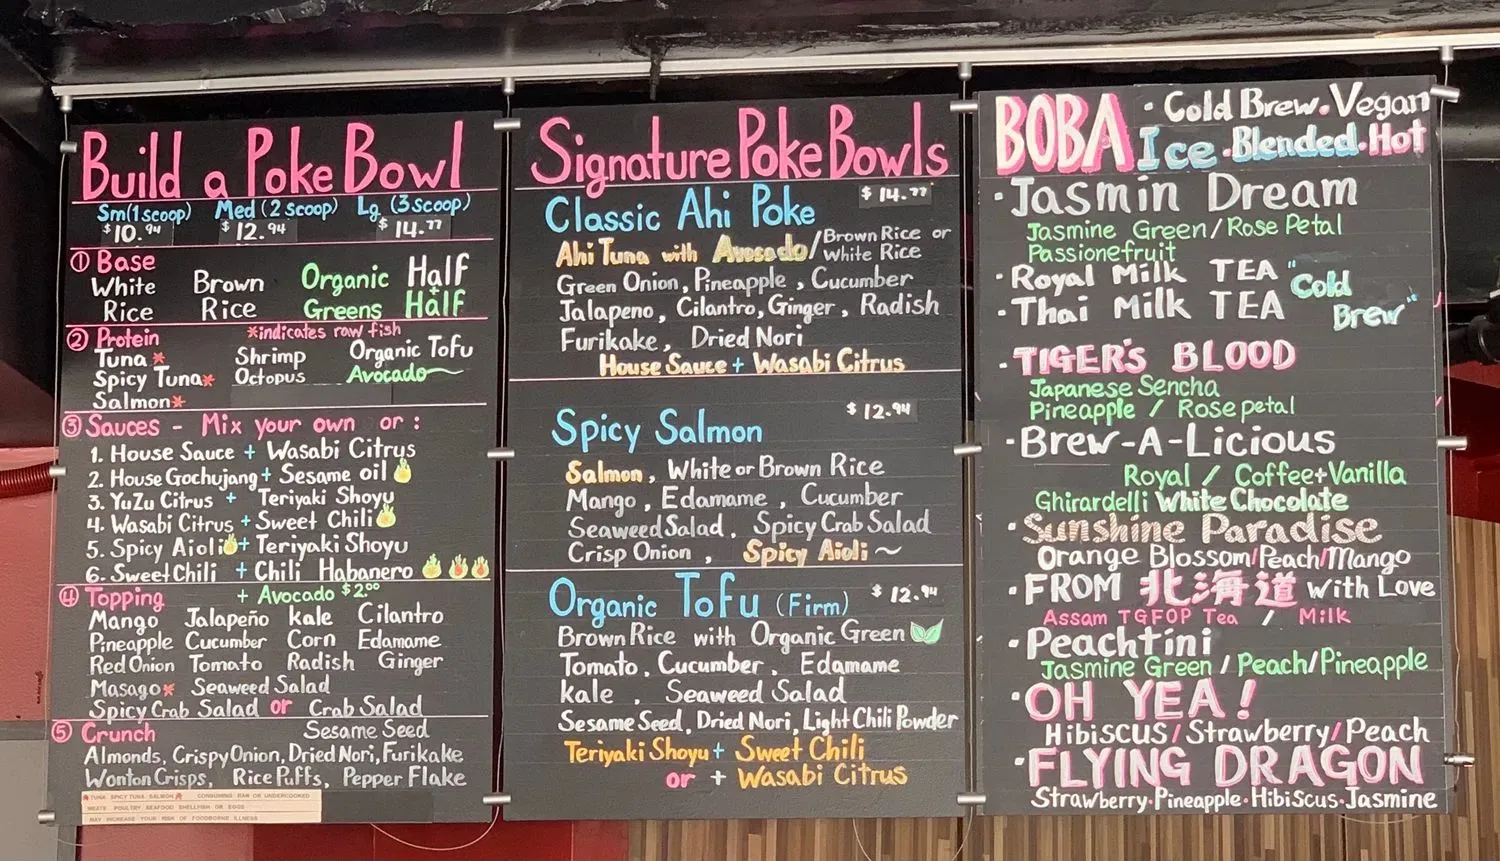 Build a Poke Bowl
Sm(1 scoop) Med (2 scoop) Lg. (3 scoop)
$10.94 $12.94 $14.77
① Base
White Brown Organic Half
Rice Rice Greens + Half
② Protein *indicates raw fish
Tuna * Shrimp Organic Tofu
Spicy Tuna* Octopus Avocado
Salmon*
③ Sauces - Mix your own or :
1. House Sauce + Wasabi Citrus
2. House Gochujang + Sesame oil
3. YuZu Citrus + Teriyaki Shoyu
4. Wasabi Citrus + Sweet Chili
5. Spicy Aioli + Teriyaki Shoyu
6. Sweet Chili + Chili Habanero
④ Topping + Avocado $2.00
Mango Jalapeño kale Cilantro
Pineapple Cucumber Corn Edamame
Red Onion Tomato Radish Ginger
Masago* Seaweed Salad
Spicy Crab Salad or Crab Salad
⑤ Crunch Sesame Seed
Almonds, Crispy Onion, Dried Nori, Furikake
Wonton Crisps, Rice Puffs, Pepper Flake
*TUNA SPICY TUNA SALMON* CONSUMING RAW OR UNDERCOOKED
MEATS POULTRY SEAFOOD SHELLFISH OR EGGS
MAY INCREASE YOUR RISK OF FOODBORNE ILLNESS
Signature Poke Bowls
Classic Ahi Poke $14.77
Ahi Tuna with Avocado / Brown Rice or
White Rice
Green Onion, Pineapple , Cucumber
Jalapeno, Cilantro, Ginger, Radish
Furikake, Dried Nori
House Sauce + Wasabi Citrus
Spicy Salmon $12.94
Salmon, White or Brown Rice
Mango, Edamame , Cucumber
Seaweed Salad, Spicy Crab Salad
Crisp Onion , Spicy Aioli ~
Organic Tofu (Firm) $12.94
Brown Rice with Organic Green
Tomato, Cucumber, Edamame
kale , Seaweed Salad
Sesame Seed, Dried Nori, Light Chili Powder
Teriyaki Shoyu + Sweet Chili
or + Wasabi Citrus
BOBA · Cold Brew · Vegan
Ice · Blended · Hot
· Jasmin Dream
Jasmine Green / Rose Petal
Passionefruit
· Royal Milk TEA "Cold
· Thai Milk TEA Brew"
· TIGER'S BLOOD
Japanese Sencha
Pineapple / Rose petal
· Brew-A-Licious
Royal / Coffee+Vanilla
Ghirardelli White Chocolate
· Sunshine Paradise
Orange Blossom/Peach/Mango
· FROM 北海道 With Love
Assam TGFOP Tea / Milk
· Peachtini
Jasmine Green / Peach/Pineapple
· OH YEA!
Hibiscus / Strawberry / Peach
· FLYING DRAGON
Strawberry · Pineapple · Hibiscus · Jasmine